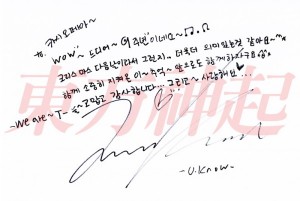 카시오페아~
to. wow~ 드디어~ 9주년이네요~♫.♫
크리스마스 다음날이라서 그런지.. 더욱더 의미있는것 같아요~^^*
함께 소중히 지켜온 이~추억~ 앞으로도 함께하자구요
-We are~ T- 늘~고맙고 감사합니다...그리고~ 사랑해요...♡
-U.Know-
東方神起